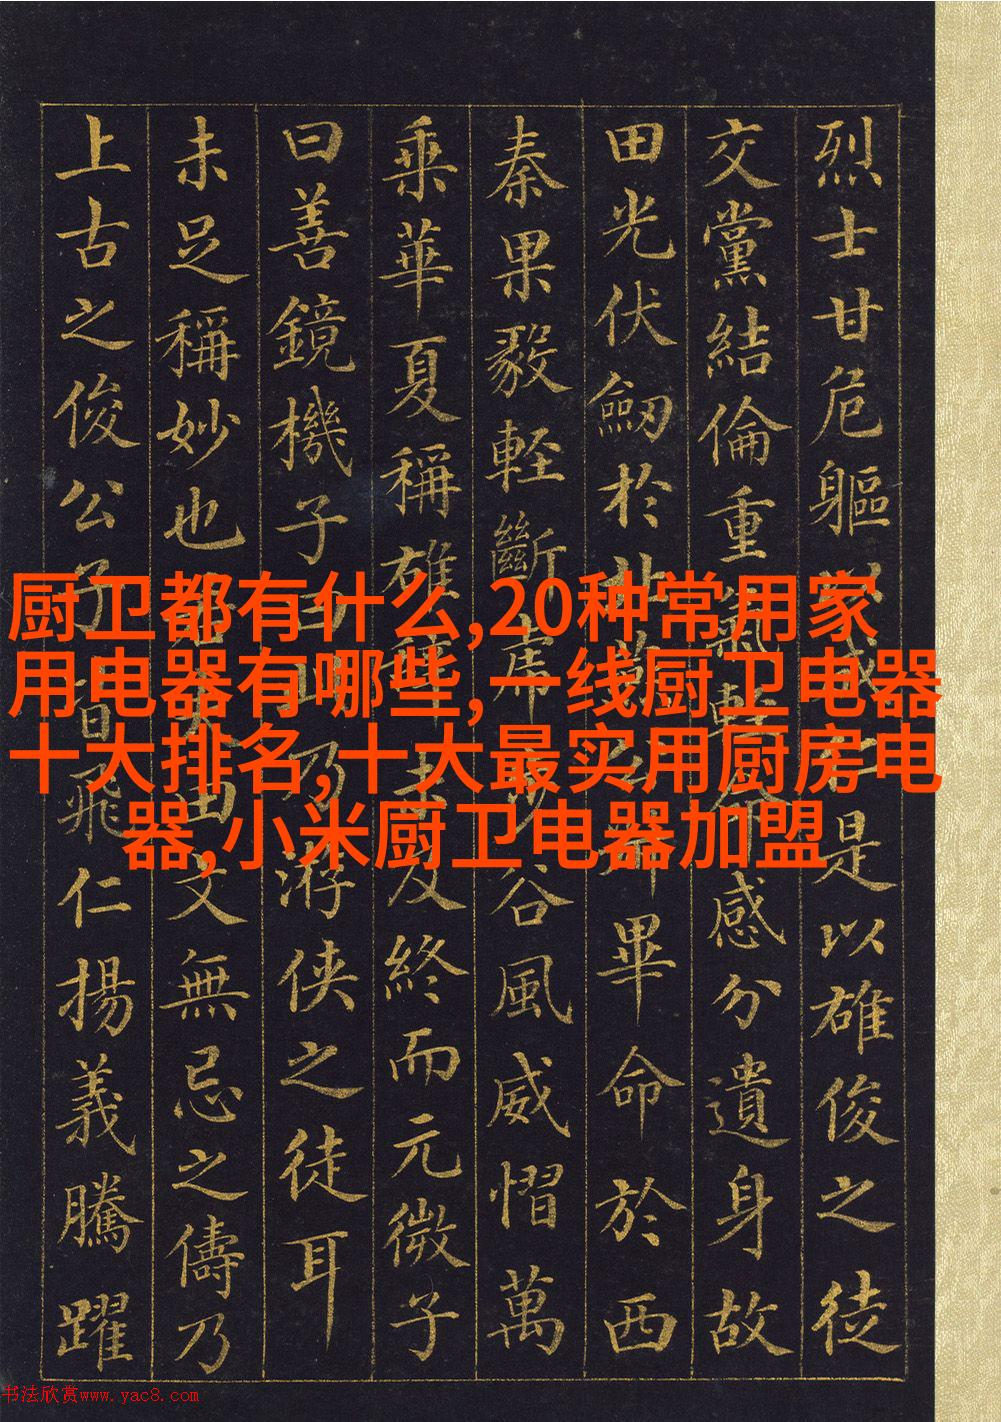 烈士甘危軀以成仁是以雄俊之徒
交黨結倫重氣輕命感分遺身故
田光伏劒於北燕公叔畢命於西
秦果毅輕斷虎步谷風威慴萬
乘華夏稱雄辭未及終而元微子
曰善鏡機子曰此乃游俠之徒耳
未足稱妙也若夫田文無忌之儔乃
上古之俊公子皆飛仁揚義騰躍
厨卫都有什么,20种常用家
用电器有哪些,一线厨卫电器
十大排名,十大最实用厨房电
器,小米厨卫电器加盟
书法欣赏www.yac8.com